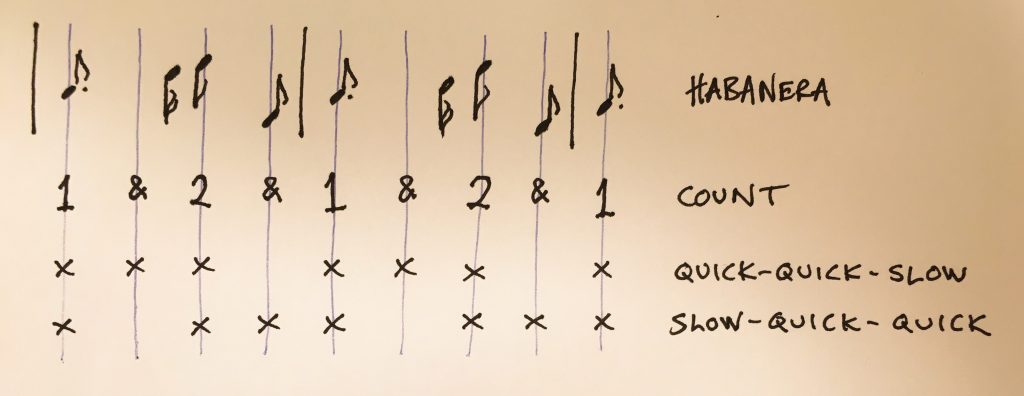 HABANERA
1 & 2 & 1 & 2 & 1 COUNT
× × × × × × × QUICK-QUICK-SLOW
× × × × × × × SLOW-QUICK-QUICK